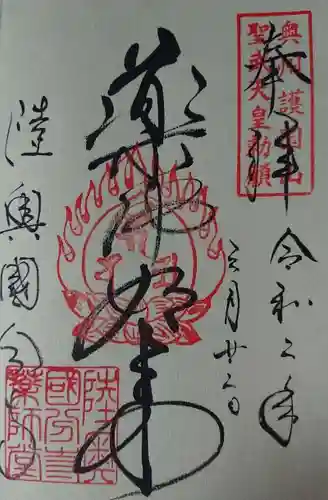 奉拝
令和二年
三月廿二日
奥州護国山
聖武天皇勅願
薬師如来
陸奥國分寺
陸奥
國分寺
薬師堂